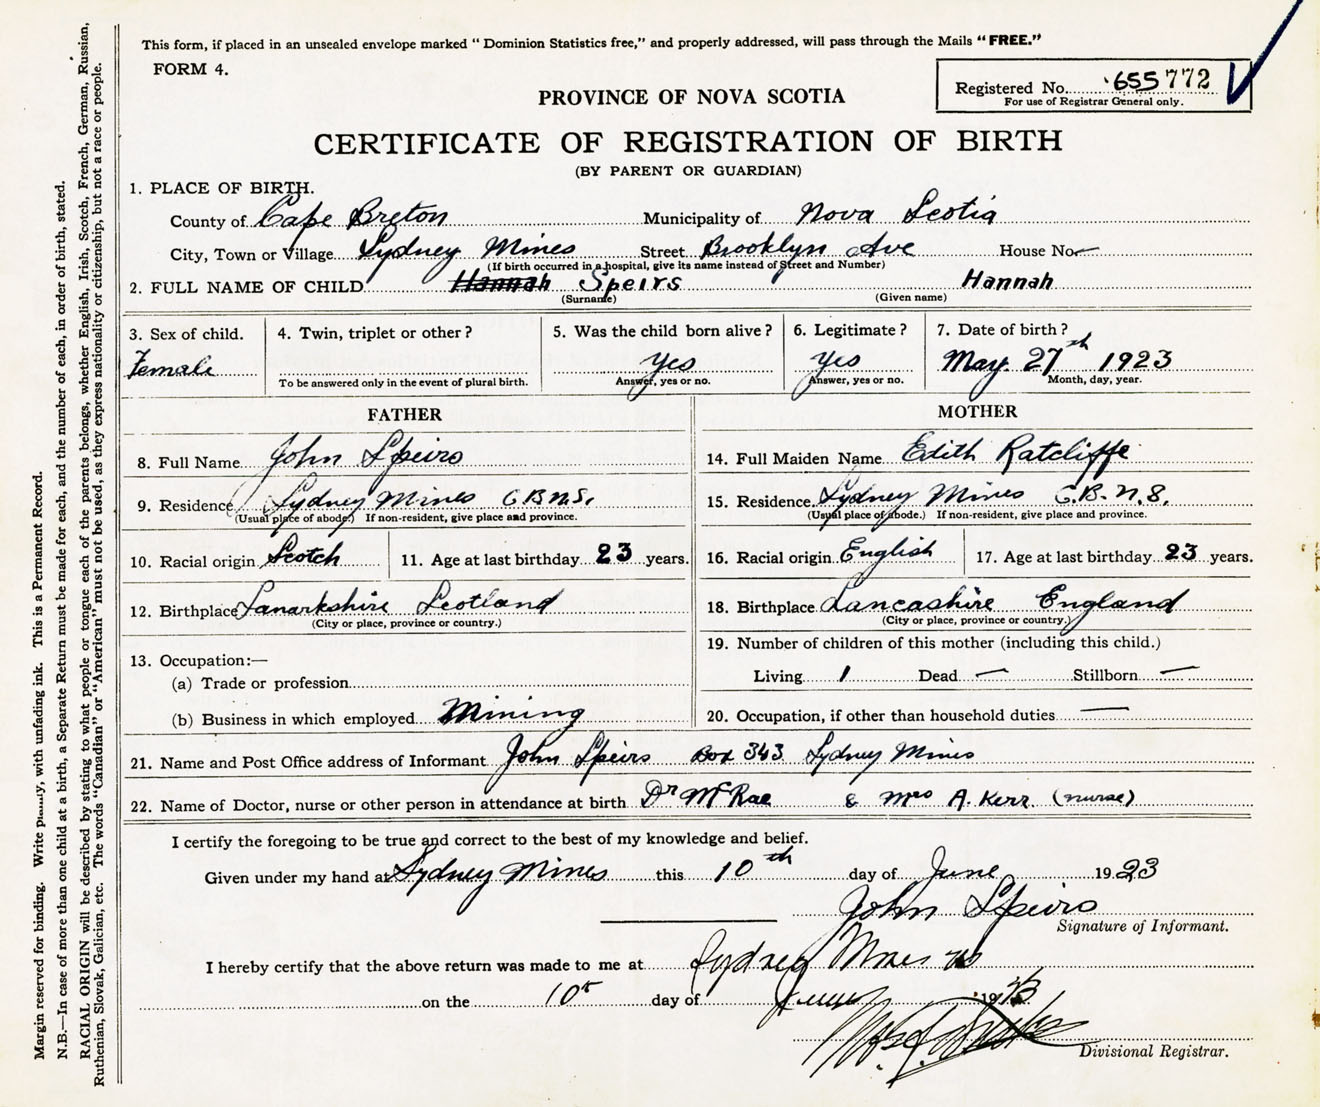 This form, if placed in an unsealed envelope marked “ Dominion Statistics free,” and properly addressed, will pass through the Mails “ FREE.”
FORM 4.
Registered No. 655772
For use of Registrar General only.
PROVINCE OF NOVA SCOTIA
CERTIFICATE OF REGISTRATION OF BIRTH
(BY PARENT OR GUARDIAN)
1. PLACE OF BIRTH.
County of Cape Breton Municipality of Nova Scotia
City, Town or Village Sydney Mines Street Brooklyn Ave House No. —
(If birth occurred in a hospital, give its name instead of Street and Number)
2. FULL NAME OF CHILD Hannah Speirs Hannah
(Surname) (Given name)
3. Sex of child. 4. Twin, triplet or other? 5. Was the child born alive? 6. Legitimate? 7. Date of birth?
Female Yes Yes May 27th 1923
To be answered only in the event of plural birth. Answer, yes or no. Answer, yes or no. Month, day, year.
FATHER
8. Full Name John Speirs
9. Residence Sydney Mines C.B.N.S.
(Usual place of abode.) If non-resident, give place and province.
10. Racial origin Scotch 11. Age at last birthday 23 years.
12. Birthplace Lanarkshire Scotland
(City or place, province or country.)
13. Occupation:—
(a) Trade or profession
(b) Business in which employed Mining
MOTHER
14. Full Maiden Name Edith Ratcliffe
15. Residence Sydney Mines C.B.N.S.
(Usual place of abode.) If non-resident, give place and province.
16. Racial origin English 17. Age at last birthday 23 years.
18. Birthplace Lancashire England
(City or place, province or country.)
19. Number of children of this mother (including this child.)
Living 1 Dead — Stillborn —
20. Occupation, if other than household duties —
21. Name and Post Office address of Informant John Speirs Box 343 Sydney Mines
22. Name of Doctor, nurse or other person in attendance at birth Dr McRae & Mrs A. Kerr (nurse)
I certify the foregoing to be true and correct to the best of my knowledge and belief.
Given under my hand at Sydney Mines this 10th day of June 1923
John Speirs
Signature of Informant.
I hereby certify that the above return was made to me at Sydney Mines NS
on the 10th day of June 1923
Divisional Registrar.
Margin reserved for binding. Write plainly, with unfading ink. This is a Permanent Record.
N.B.—In case of more than one child at a birth, a Separate Return must be made for each, and the number of each, in order of birth, stated.
RACIAL ORIGIN will be described by stating to what people or tongue each of the parents belongs, whether English, Irish, Scotch, French, German, Russian,
Ruthenian, Slovak, Galician, etc. The words “Canadian” or “American” must not be used, as they express nationality or citizenship, but not a race or people.